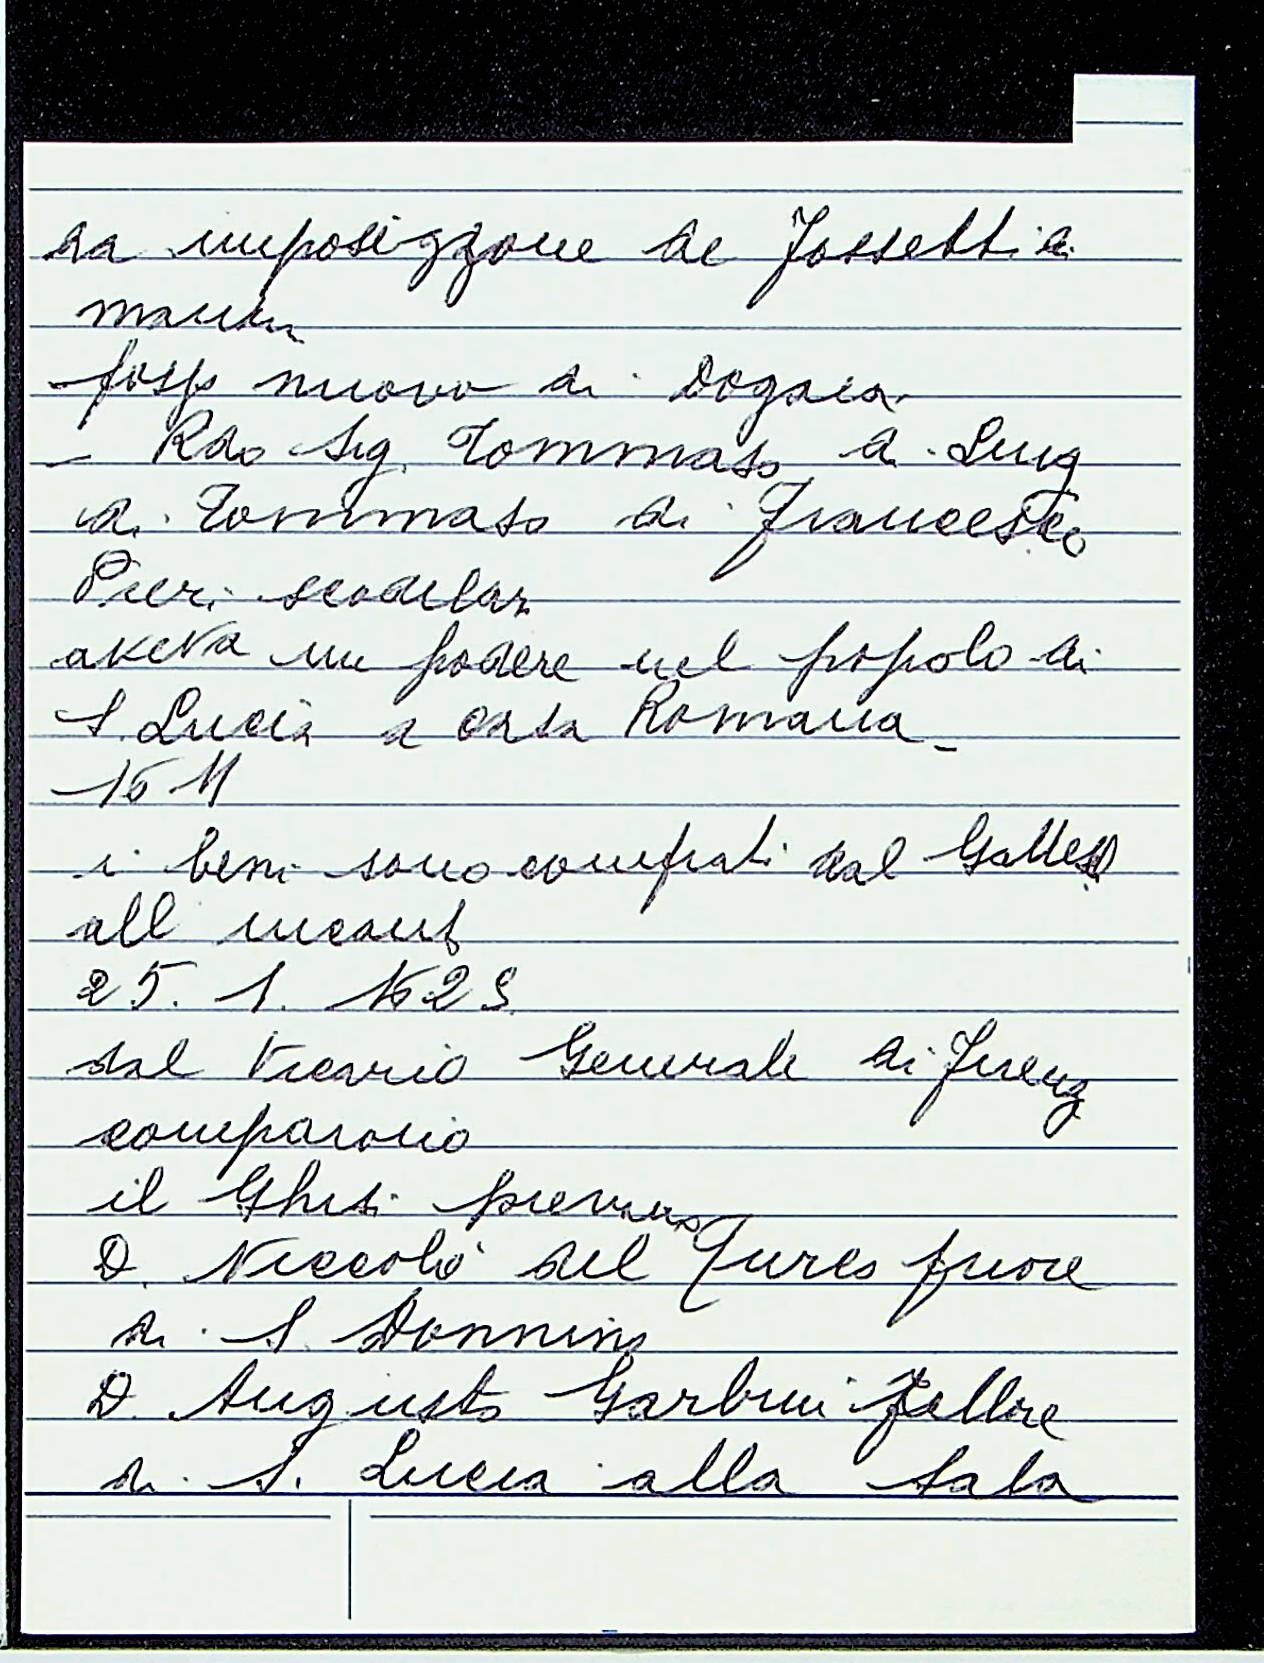 da imposizzone de Fossetti di
manin
foss nuovo di Dogaia
- Rdo Sig. Tommaso di Luig
di Tommaso di Francesco
Pieri scodellar
aveva un podere nel popolo di
S. Lucia a Casa Romana -
1611
i beni sono comprati dal
all incant
25. 1. 1629
dal Vicario Generale di Firenz
comparono
il Ghisi pievano
D. Niccolò del Turco priore
di S. Donnino
D. Augusto Garbini rettore
di S. Lucia alla Sala